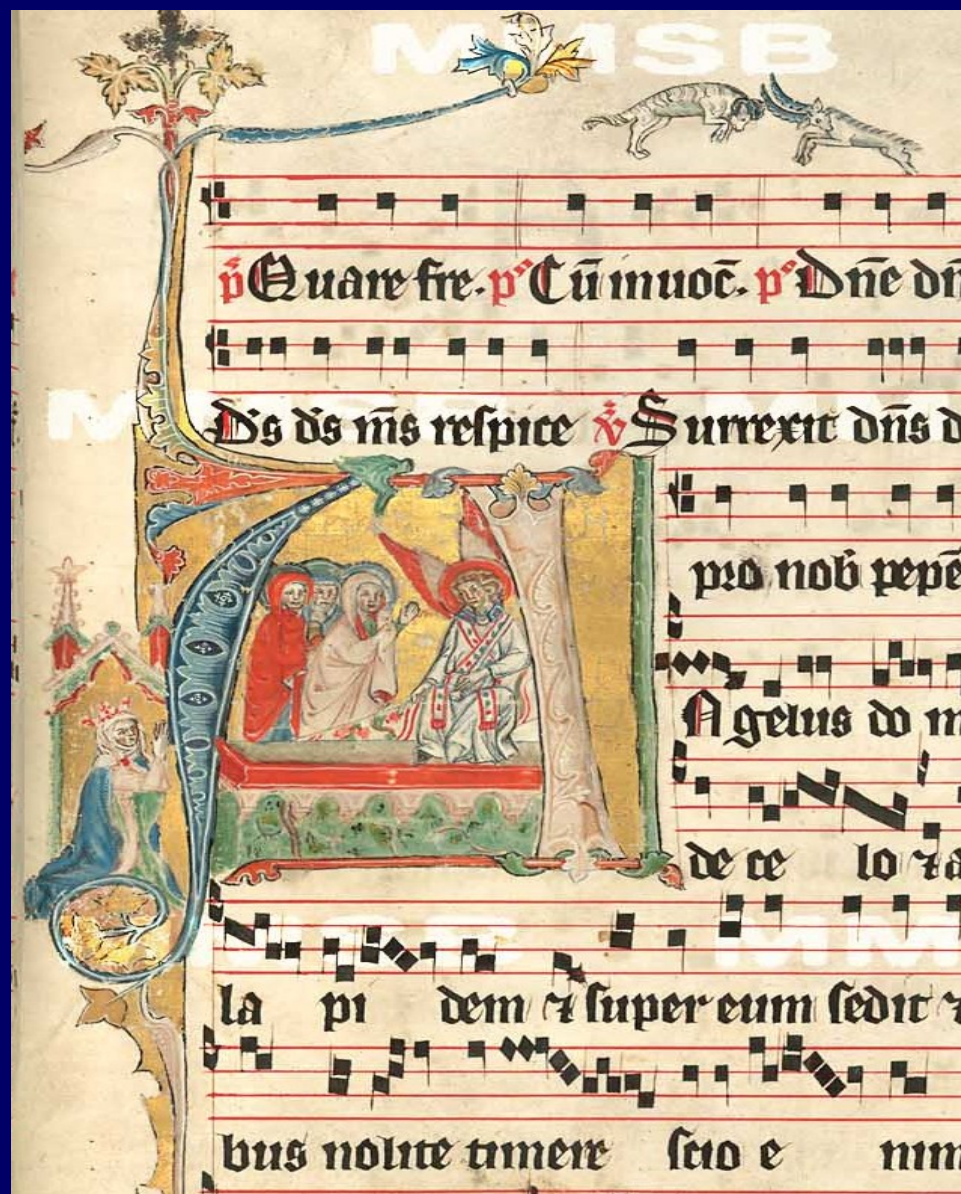 MMSB
p̃ Quare fre. pˢ Cū inuoc̄. pˢ Dn̄e dn̄
Ds̄ ds̄ m̄s respice v̄ Surrexit dn̄s d
pro nob̄ pepē
Angelus do m
de ce lo ⁊ a
la pi dem ⁊ super eum sedit ⁊
bus nolite timere scio e nim